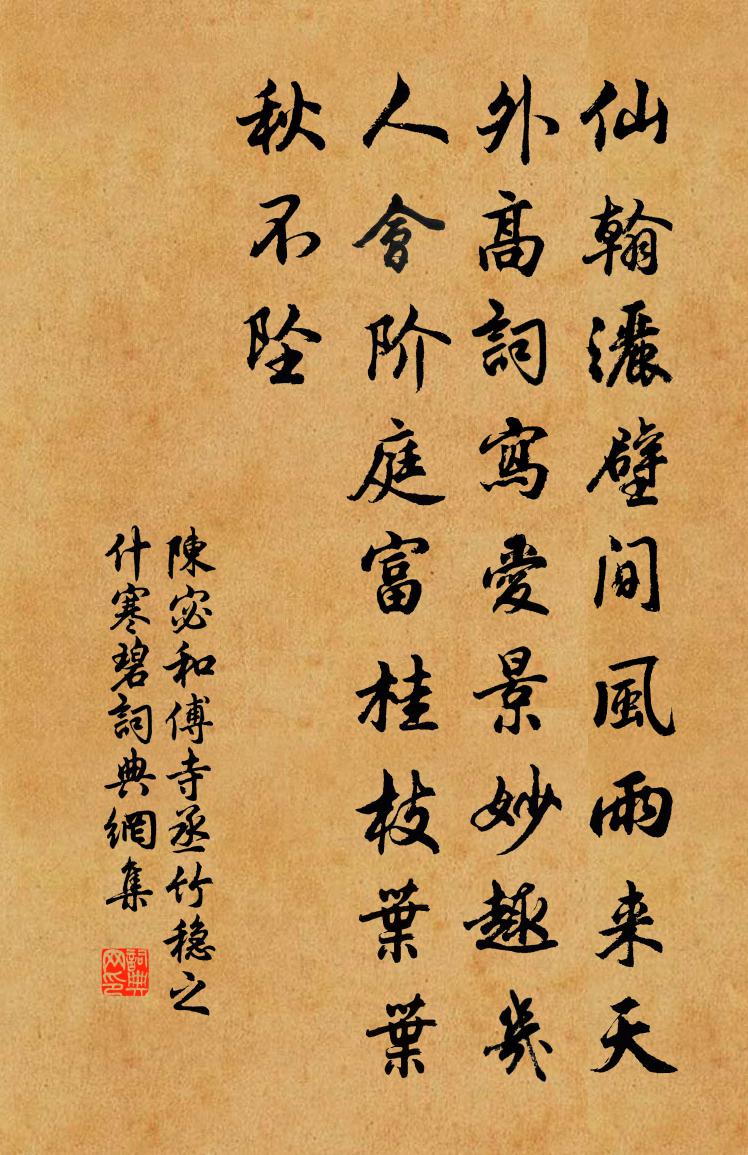 仙翰灑壁間風雨来天
外高詞寫愛景妙趣幾
人會阶庭富桂枝葉葉
秋不坠
陳宓和傅寺丞竹穏之
什寒碧詞典網集
詞典网印